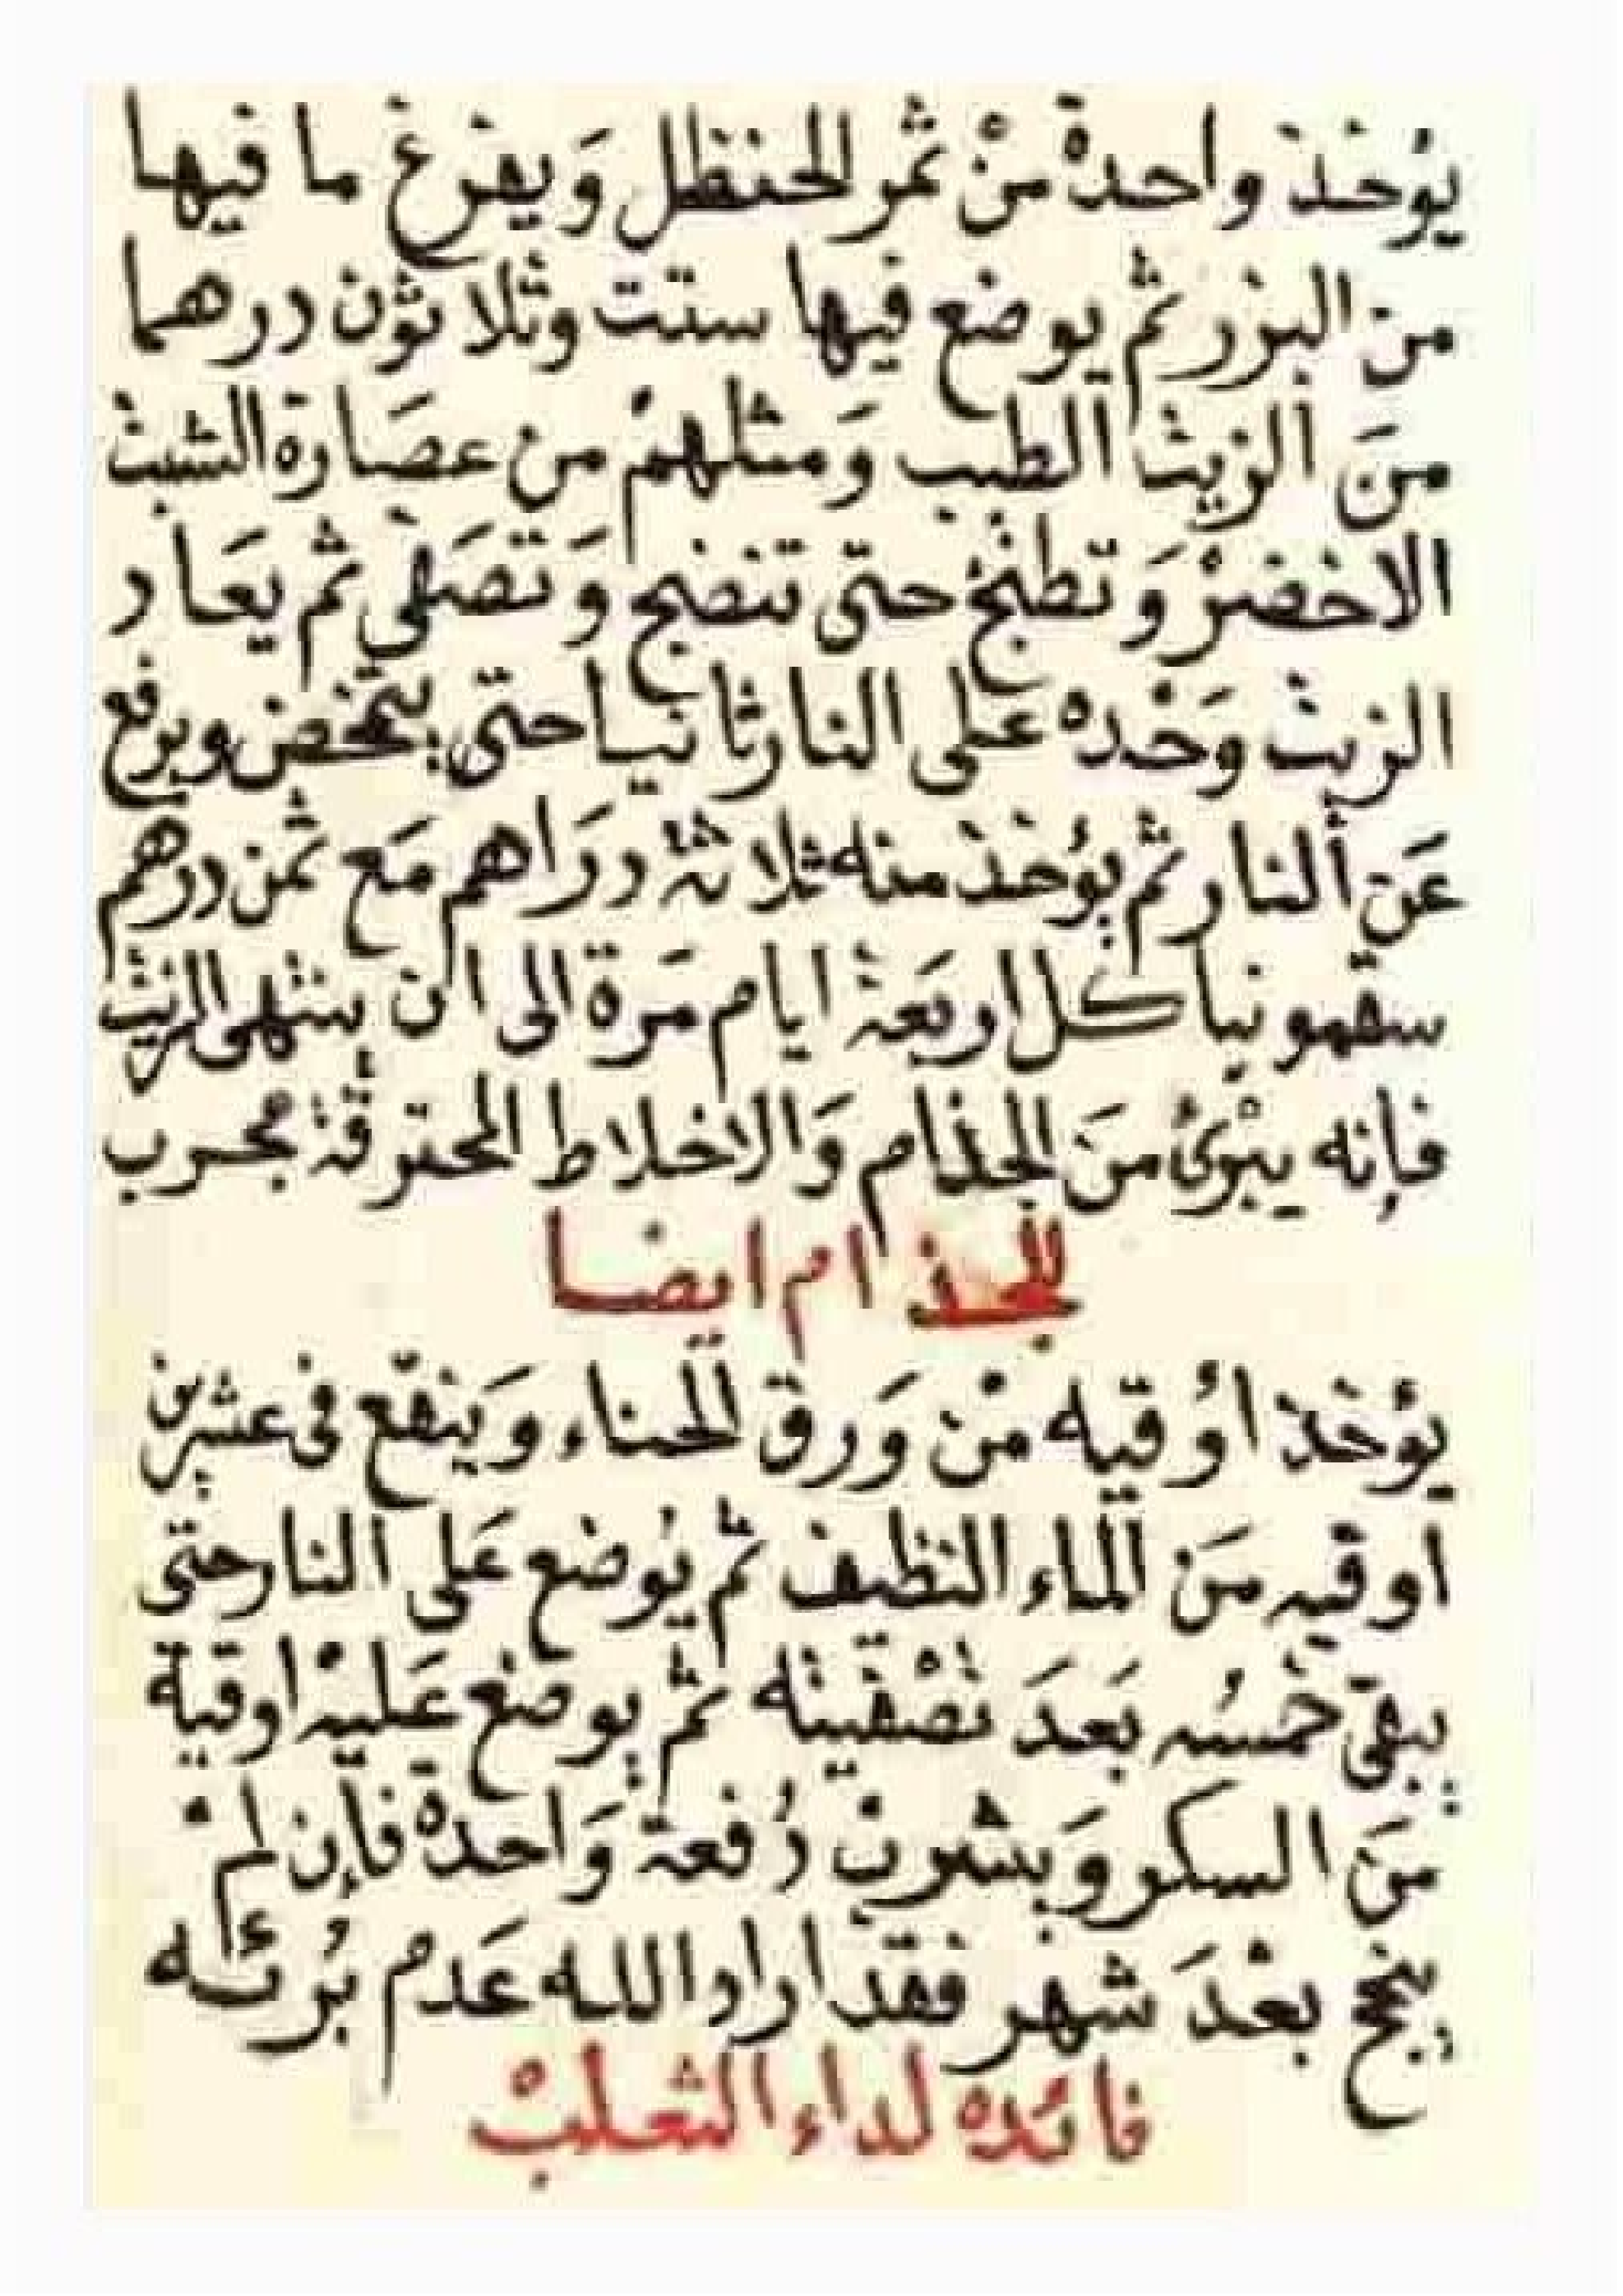 يؤخذ واحدة من ثمر الحنظل وَيفرغ ما فيها
من البزر ثم يوضع فيها ستت وثلاثون درهما
منَ الزيت الطيب وَمثلهم من عصَارة الشبث
الاخضر وَتطبخ حتى تنضج وَتصَفى ثم يعَاد
الزيت وَحده على النار ثانيا حتى يتخض ويرفع
عَن النار ثم يؤخذ منه ثلاثة درَاهم مَع ثمن درهم
سقمونيا كل اربَعة ايام مَرة الى ان ينتهى الزيت
فإنه يبْرئ منَ الجذام وَالاخلاط المحترقة مجرب
للجذام ايضا
يؤخَذ اوُقيه منْ وَرق الحناء وَينقّع فى عشرين
اوقيه مَن الماء النظيف ثم يُوضع عَلى النار حتى
يبقى خمسُه بَعدَ تصْفيته ثم يوضع عَليه اوقية
منَ السكر وَيشرب دُفعة وَاحدة فإن لمْ
ينجح بعْدَ شهر فقد اراد الله عَدم بُرئه
فائده لداء الثعلبْ